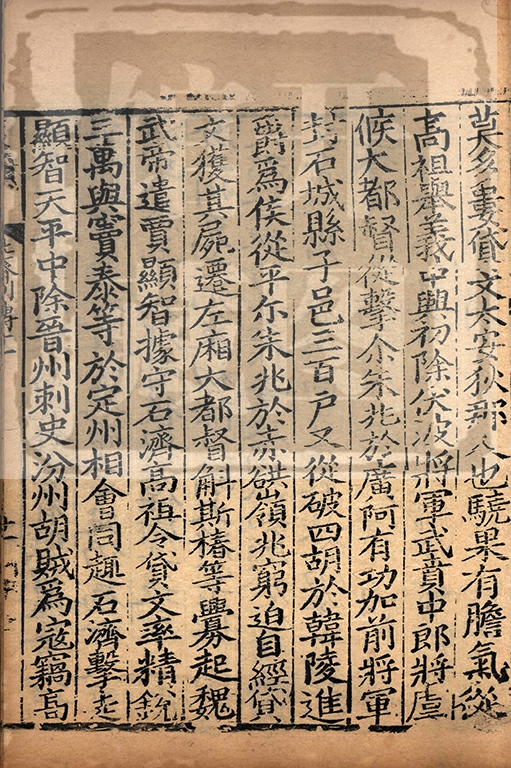 莫多婁貸文太安狄那人也驍果有膽氣從
高祖舉義中興初除伏波將軍武賁中郎將虞
候大都督從擊尒朱兆於廣阿有功加前將軍
封石城縣子邑三百戶又從破四胡於韓陵進
爵爲侯從平尒朱兆於赤谼嶺兆窮迫自經貸
文獲其屍遷左廂大都督斛斯椿等釁起魏
武帝遣賈顯智據守石濟高祖令貸文率精銳
三萬與竇泰等於定州相會同趣石濟擊走
顯智天平中除晉州刺史汾州胡賊爲寇竊高